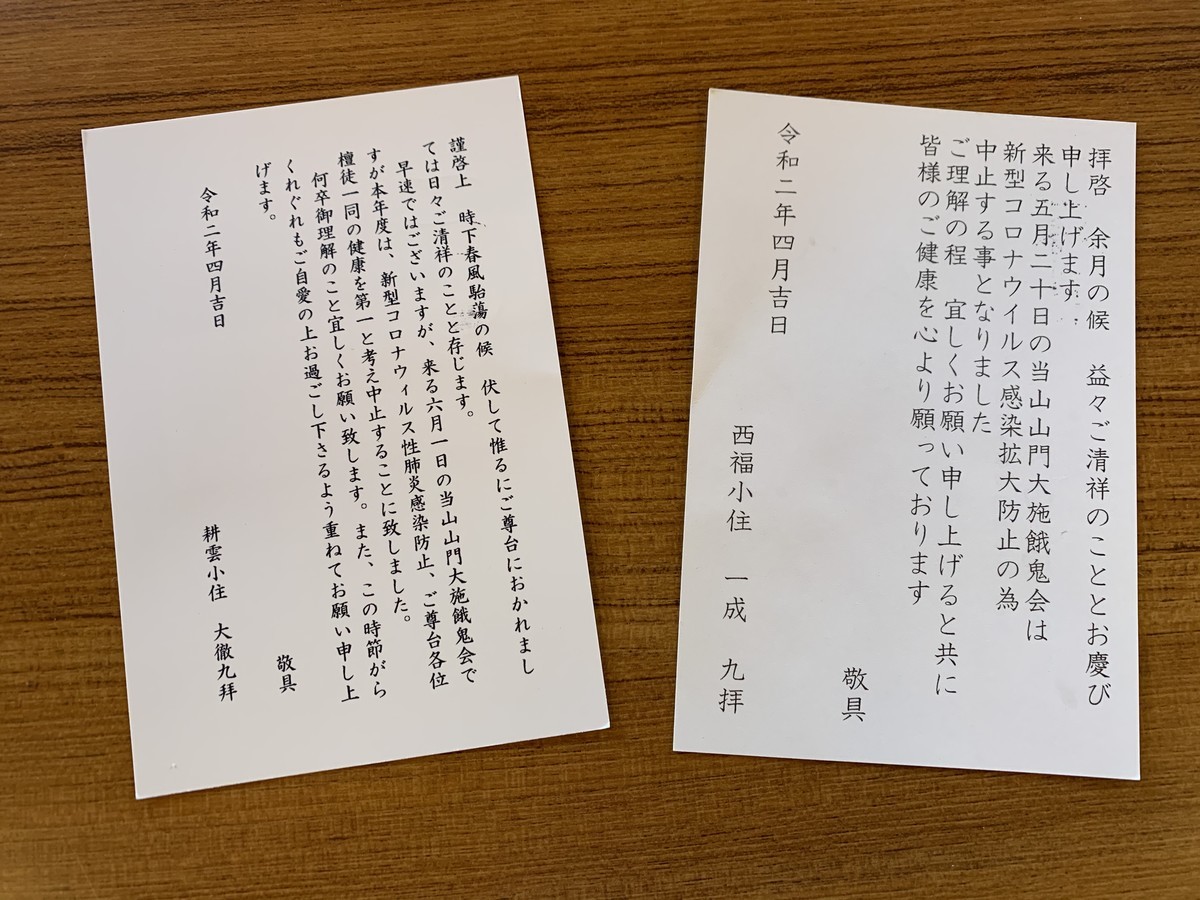 拝啓　余月の候　益々ご清祥のこととお慶び
申し上げます
来る五月二十日の当山山門大施餓鬼会は
新型コロナウイルス感染拡大防止の為
中止する事となりました
ご理解の程　宜しくお願い申し上げると共に
皆様のご健康を心より願っております
敬具
令和二年四月吉日
西福小住　一成　九拝
謹啓上　時下春風駘蕩の候　伏して惟るにご尊台におかれまし
ては日々ご清祥のことと存じます。
早速ではございますが、来る六月一日の当山山門大施餓鬼会で
すが本年度は、新型コロナウィルス性肺炎感染防止、ご尊台各位
檀徒一同の健康を第一と考え中止することに致しました。
何卒御理解のこと宜しくお願い致します。また、この時節がら
くれぐれもご自愛の上お過ごし下さるよう重ねてお願い申し上
げます。
敬具
令和二年四月吉日
耕雲小住　大徹九拝